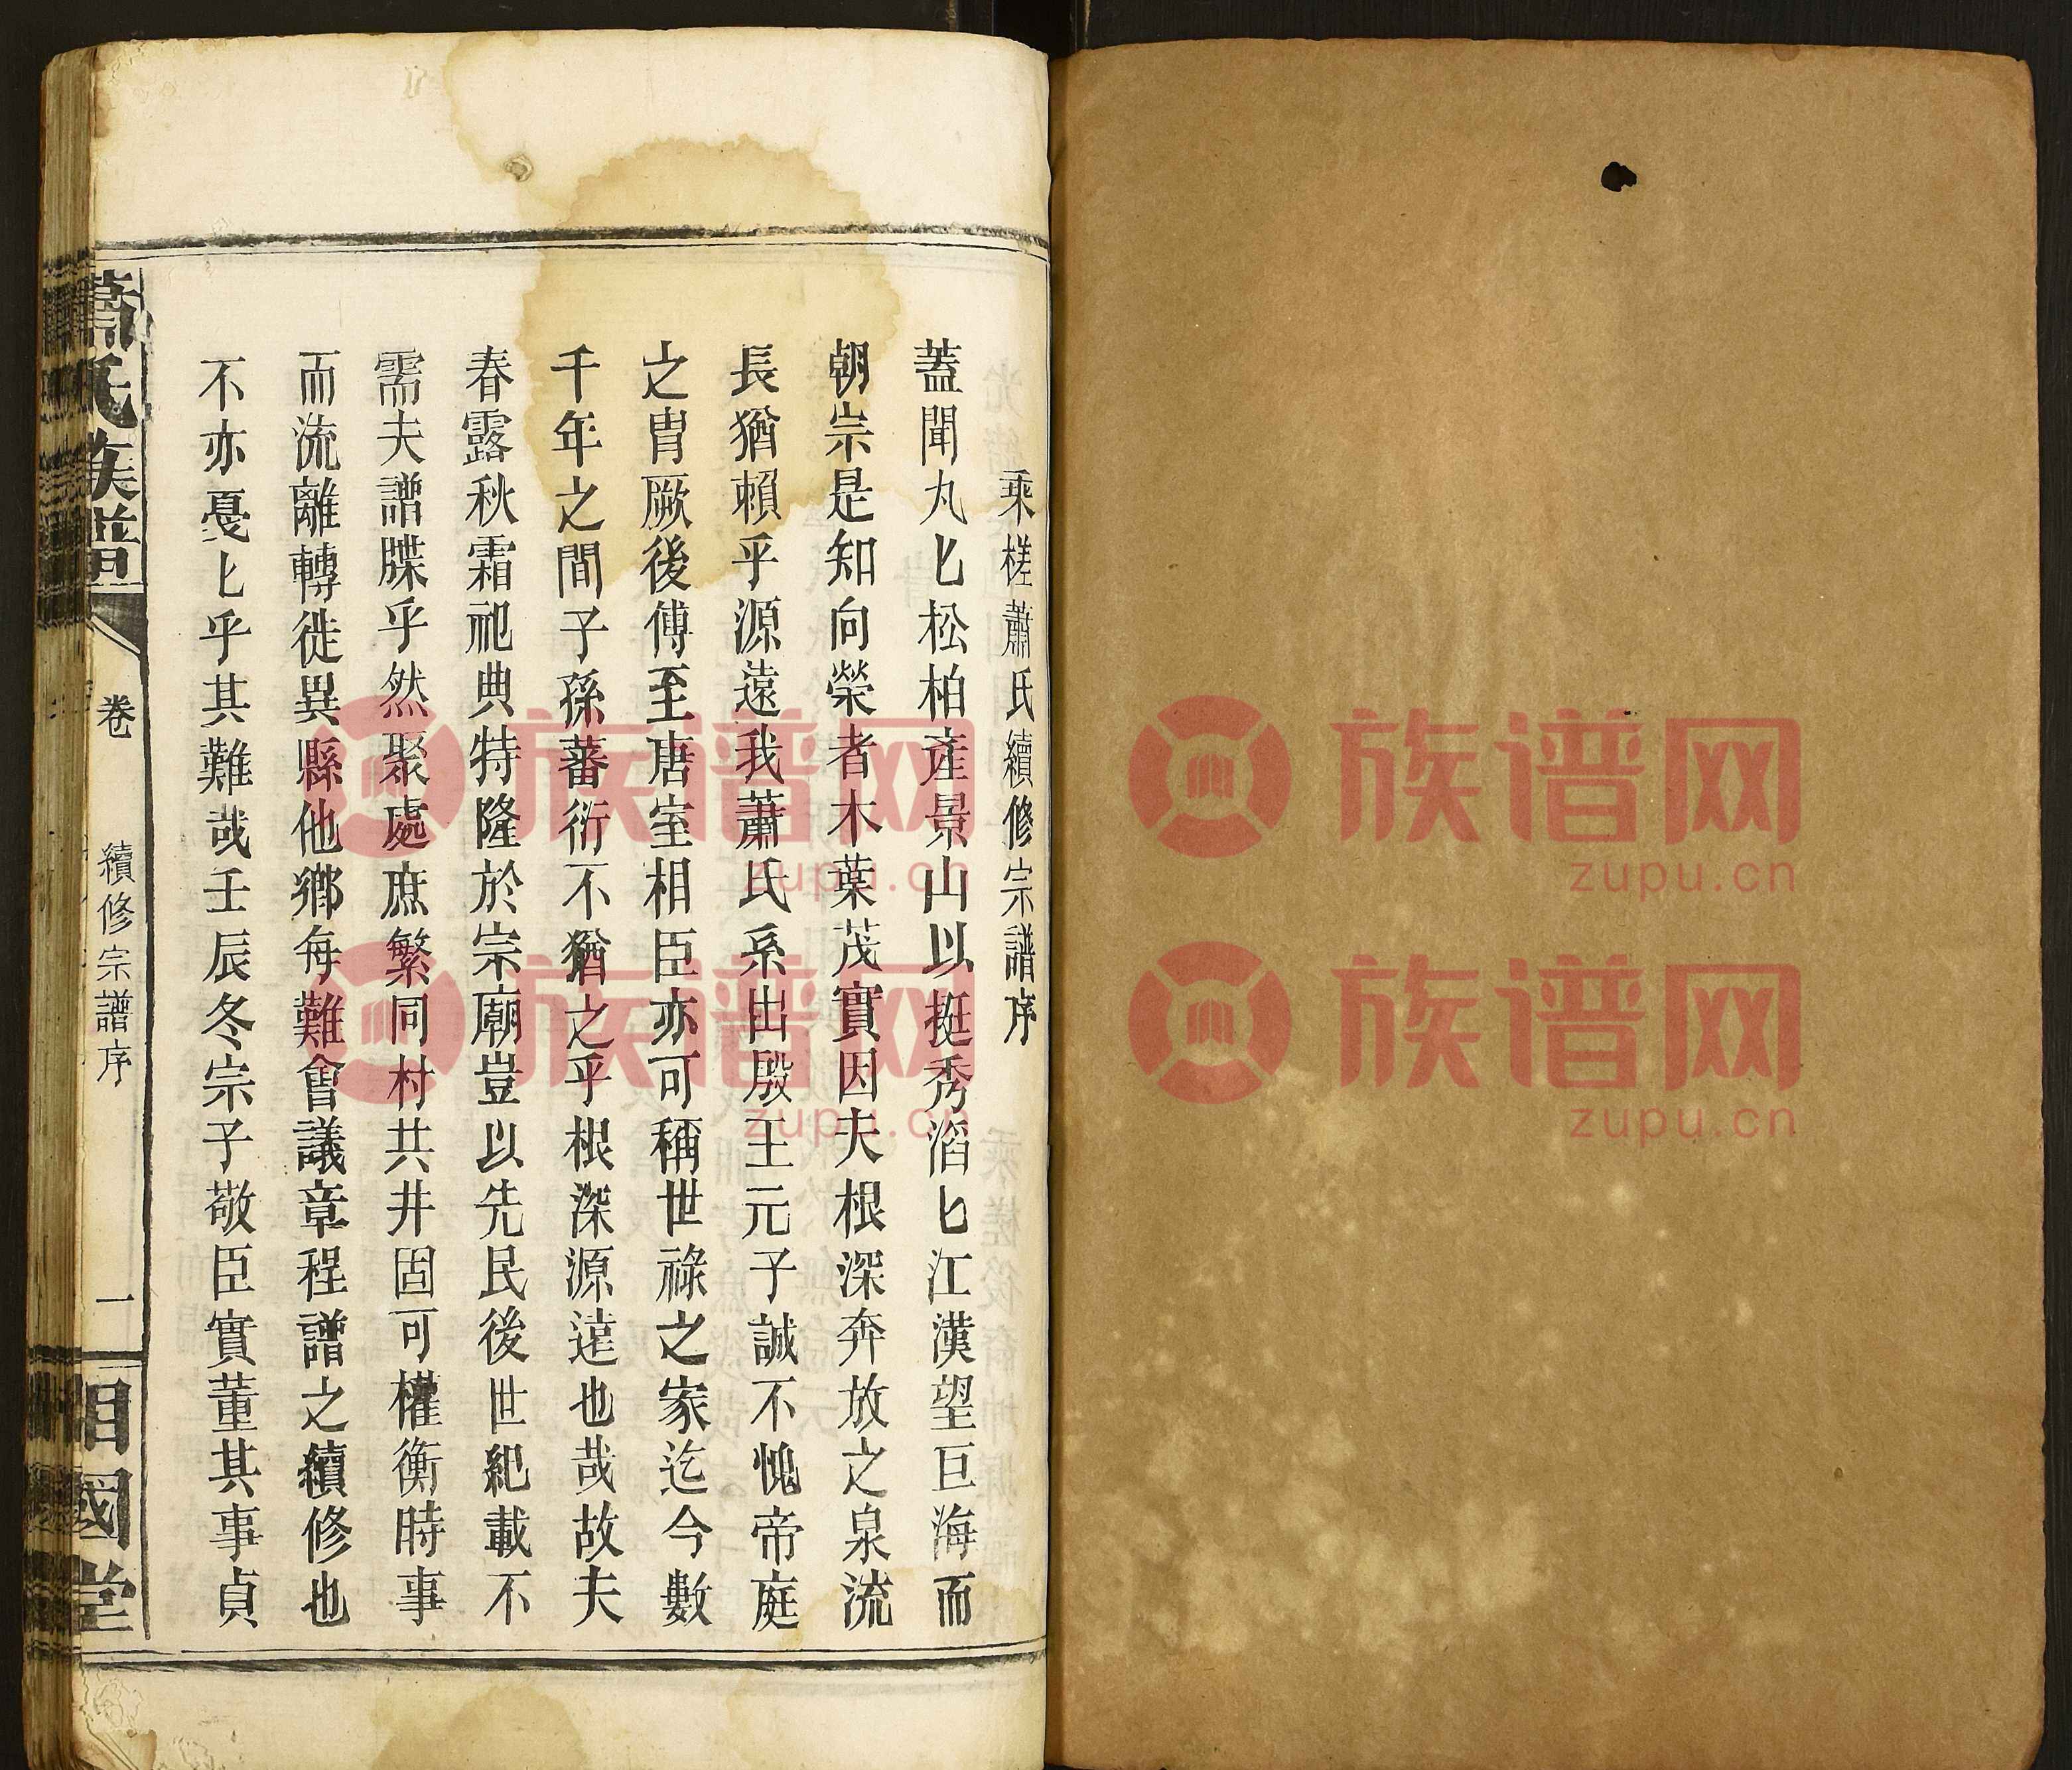 乘槎蕭氏續修宗譜序
蓋聞丸匕松柏産景山以挺秀滔匕江漢望巨海而
朝宗是知向榮者木葉茂實因夫根深奔放之泉流
長猶賴乎源遠我蕭氏系出殷王元子誠不愧帝庭
之胄厥後傅至唐室相臣亦可稱世祿之家迄今數
千年之間子孫蕃衍不猶之乎根深源遠也哉故夫
春露秋霜祀典特隆於宗廟豈以先民後世紀載不
需夫譜牒乎然聚處庶繁同村共井固可權衡時事
而流離轉徙異縣他鄉每難會議章程譜之續修也
不亦戛匕乎其難哉壬辰冬宗子敬臣實董其事貞
蕭氏族譜
卷
續修宗譜序
一
相國堂
族谱网
zupu.cn
族谱网
zupu.cn
族谱网
zupu.cn
族谱网
zupu.cn